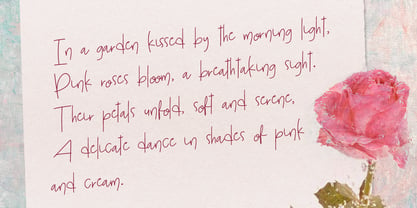 In a garden kissed by the morning light,
Pink roses bloom, a breathtaking sight.
Their petals unfold, soft and serene,
A delicate dance in shades of pink
and cream.